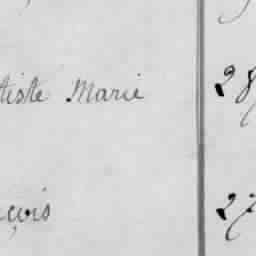 tiste Marie 28
çois 27